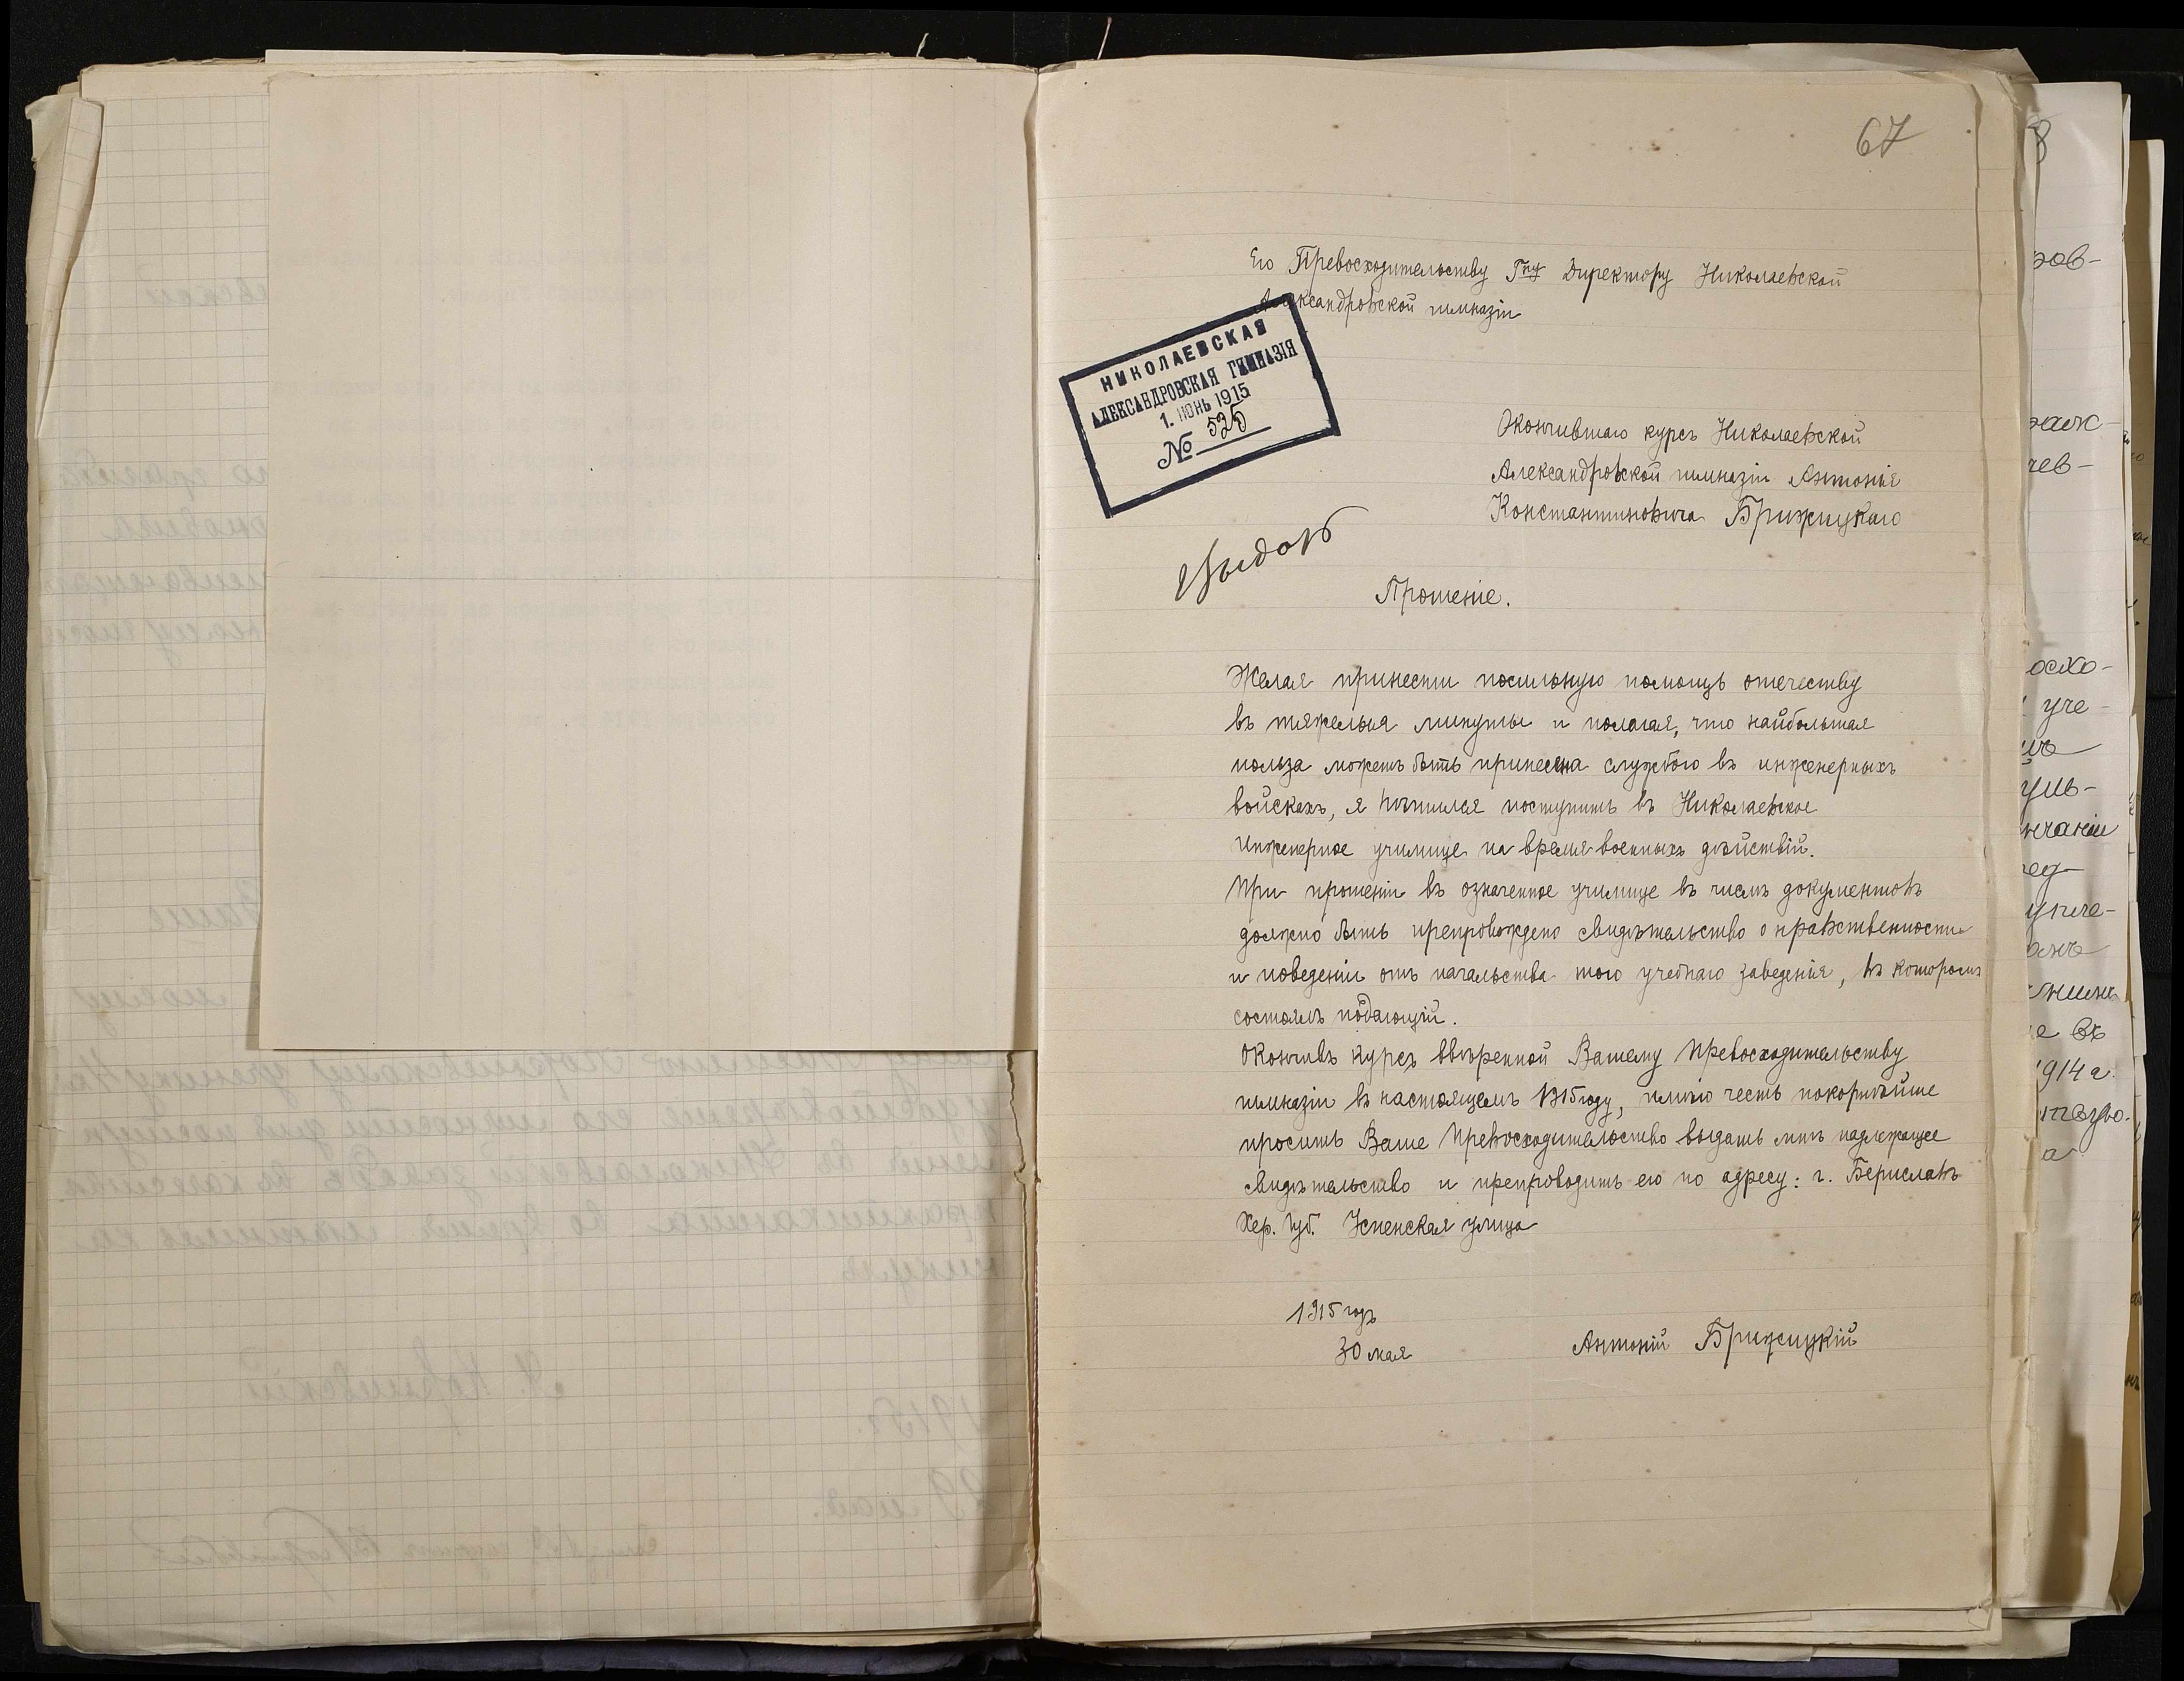 67
Его Превосходительству Гну Директору Николаевской
Александровской гимназіи
НИКОЛАЕВСКАЯ
АЛЕКСАНДРОВСКАЯ ГИМНАЗІЯ
1. ІЮНЬ 1915
№ 525
Окончившаго курсъ Николаевской
Александровской гимназіи Антонія
Константиновича Брижицкаго
Прошеніе.
Желая принести посильную помощь отечеству
въ тяжелыя минуты и полагая, что наибольшая
польза можетъ быть принесена службою въ инженерныхъ
войскахъ, я рѣшился поступить въ Николаевское
Инженерное училище на время военныхъ дѣйствій.
При прошеніи въ означенное училище въ числѣ документовъ
должно быть препровождено свидѣтельство о нравственности
и поведеніи отъ начальства того учебнаго заведенія, въ которомъ
состоялъ подающій.
Окончивъ курсъ ввѣренной Вашему Превосходительству
гимназіи въ настоящемъ 1915 году, имѣю честь покорнѣйше
просить Ваше Превосходительство выдать мнѣ надлежащее
свидѣтельство и препроводить его по адресу: г. Бериславъ
Хер. губ. Успенская улица
1915 годъ
30 мая
Антоній Брижицкій